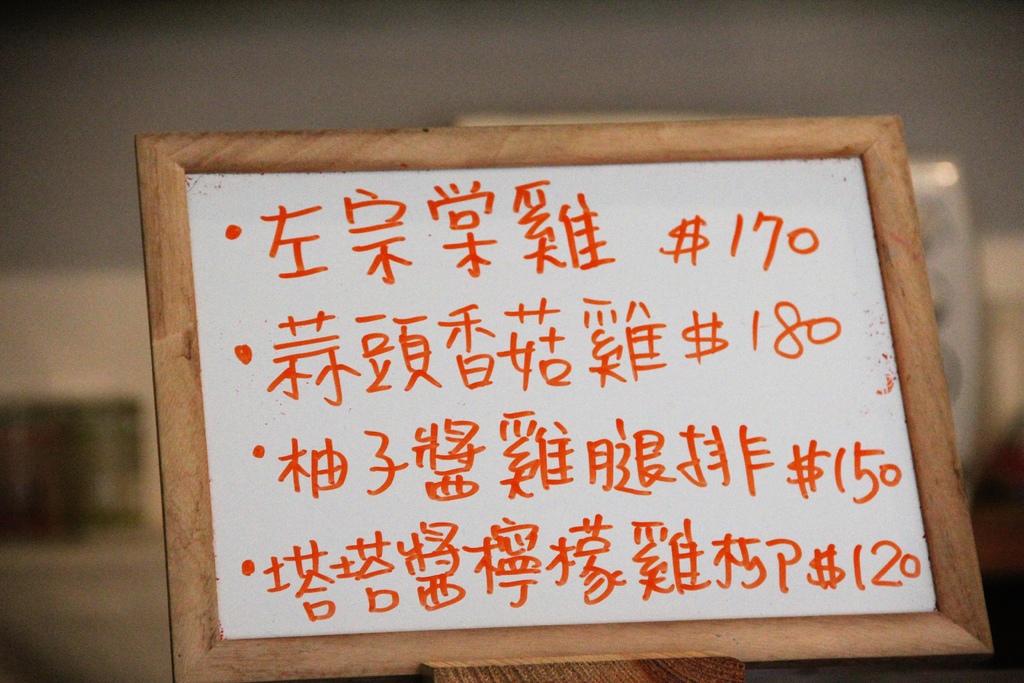 • 左宗棠雞 $170
• 蒜頭香菇雞 $180
• 柚子醬雞腿排 $150
• 塔塔醬檸檬雞柳P $120